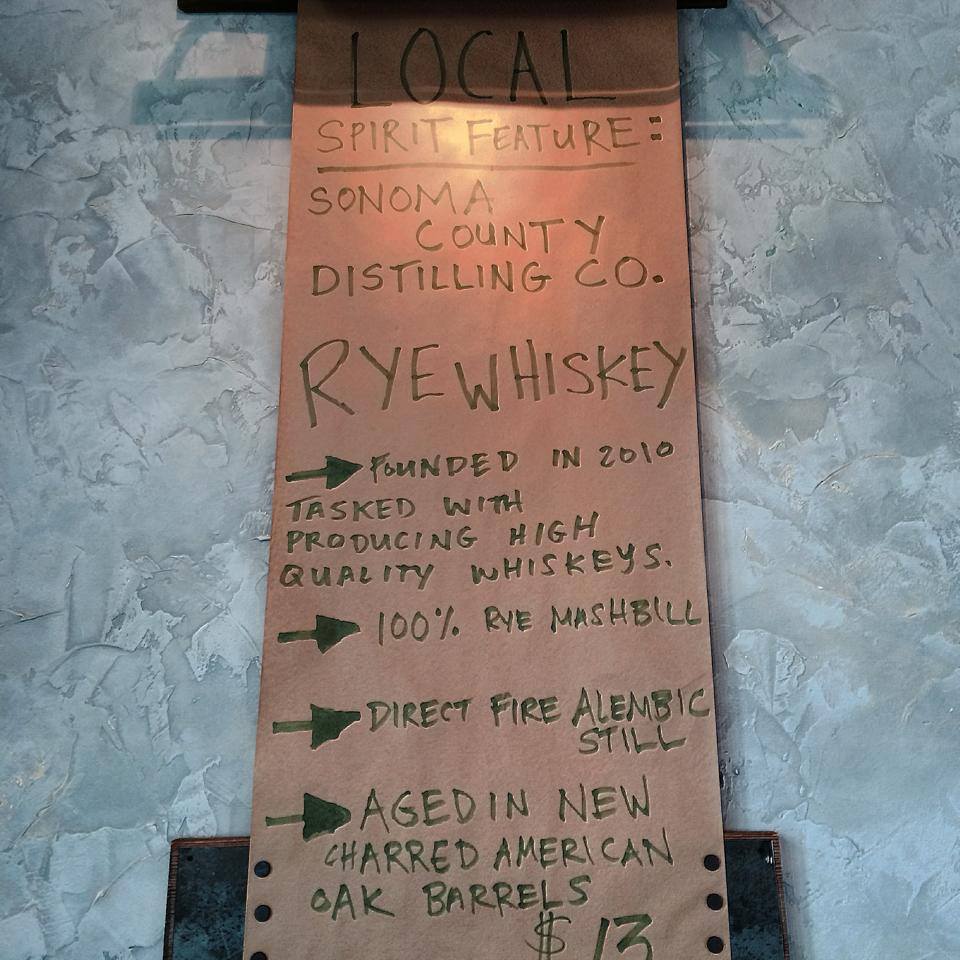 LOCAL
SPIRIT FEATURE:
SONOMA
COUNTY
DISTILLING CO.
RYE WHISKEY
FOUNDED IN 2010
TASKED WITH
PRODUCING HIGH
QUALITY WHISKEYS.
100% RYE MASHBILL
DIRECT FIRE ALEMBIC
STILL
AGED IN NEW
CHARRED AMERICAN
OAK BARRELS
$13